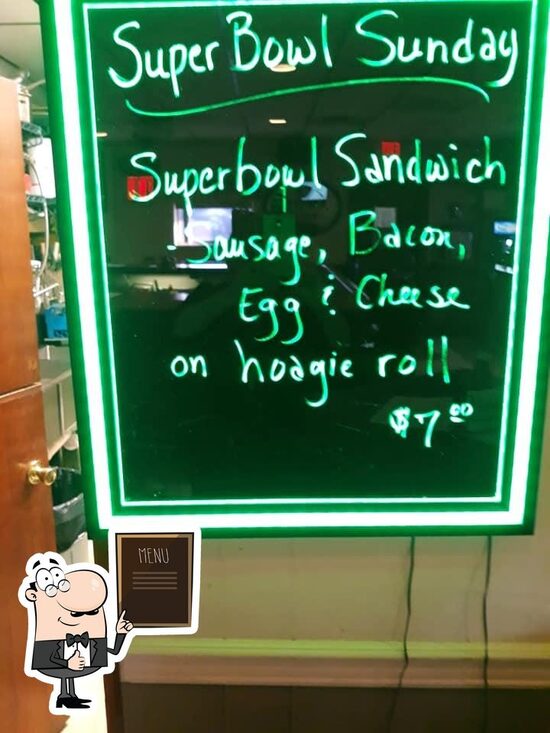 Super Bowl Sunday
Superbowl Sandwich
- Sausage, Bacon,
Egg & Cheese
on hoagie roll
$7.00
MENU